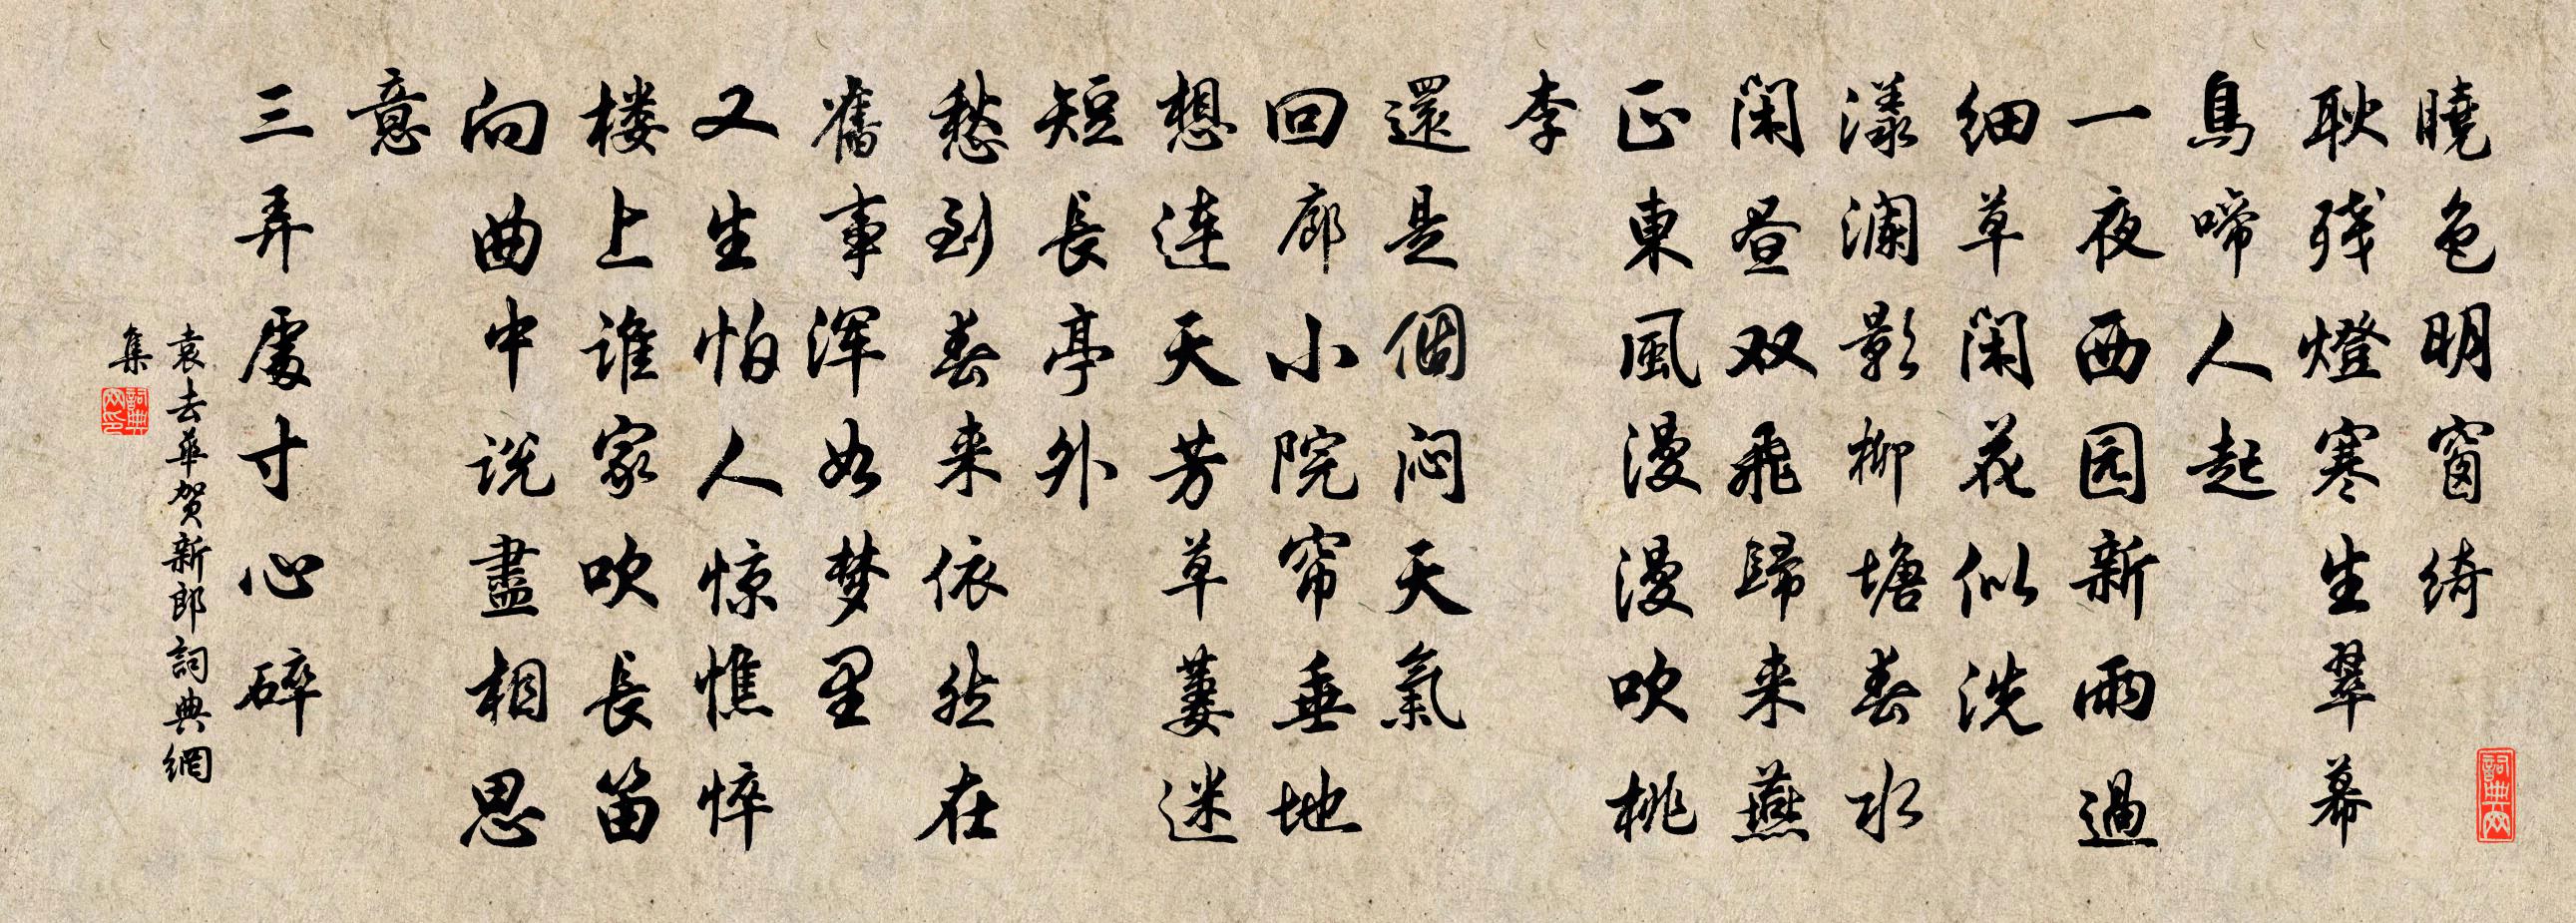 曉色明窗綺
耿残燈寒生翠幕
鳥啼人起
一夜西园新雨過
细草闲花似洗
漾澜影柳塘春水
闲昼双飛歸来燕
正東風漫漫吹桃
李
還是個闷天氣
回廊小院帘垂地
想连天芳草萋迷
短長亭外
愁到春来依然在
舊事浑如梦里
又生怕人惊憔悴
楼上谁家吹長笛
向曲中说盡相思
意
三弄處寸心碎
袁去華贺新郎詞典網
集
詞典网印
詞典网